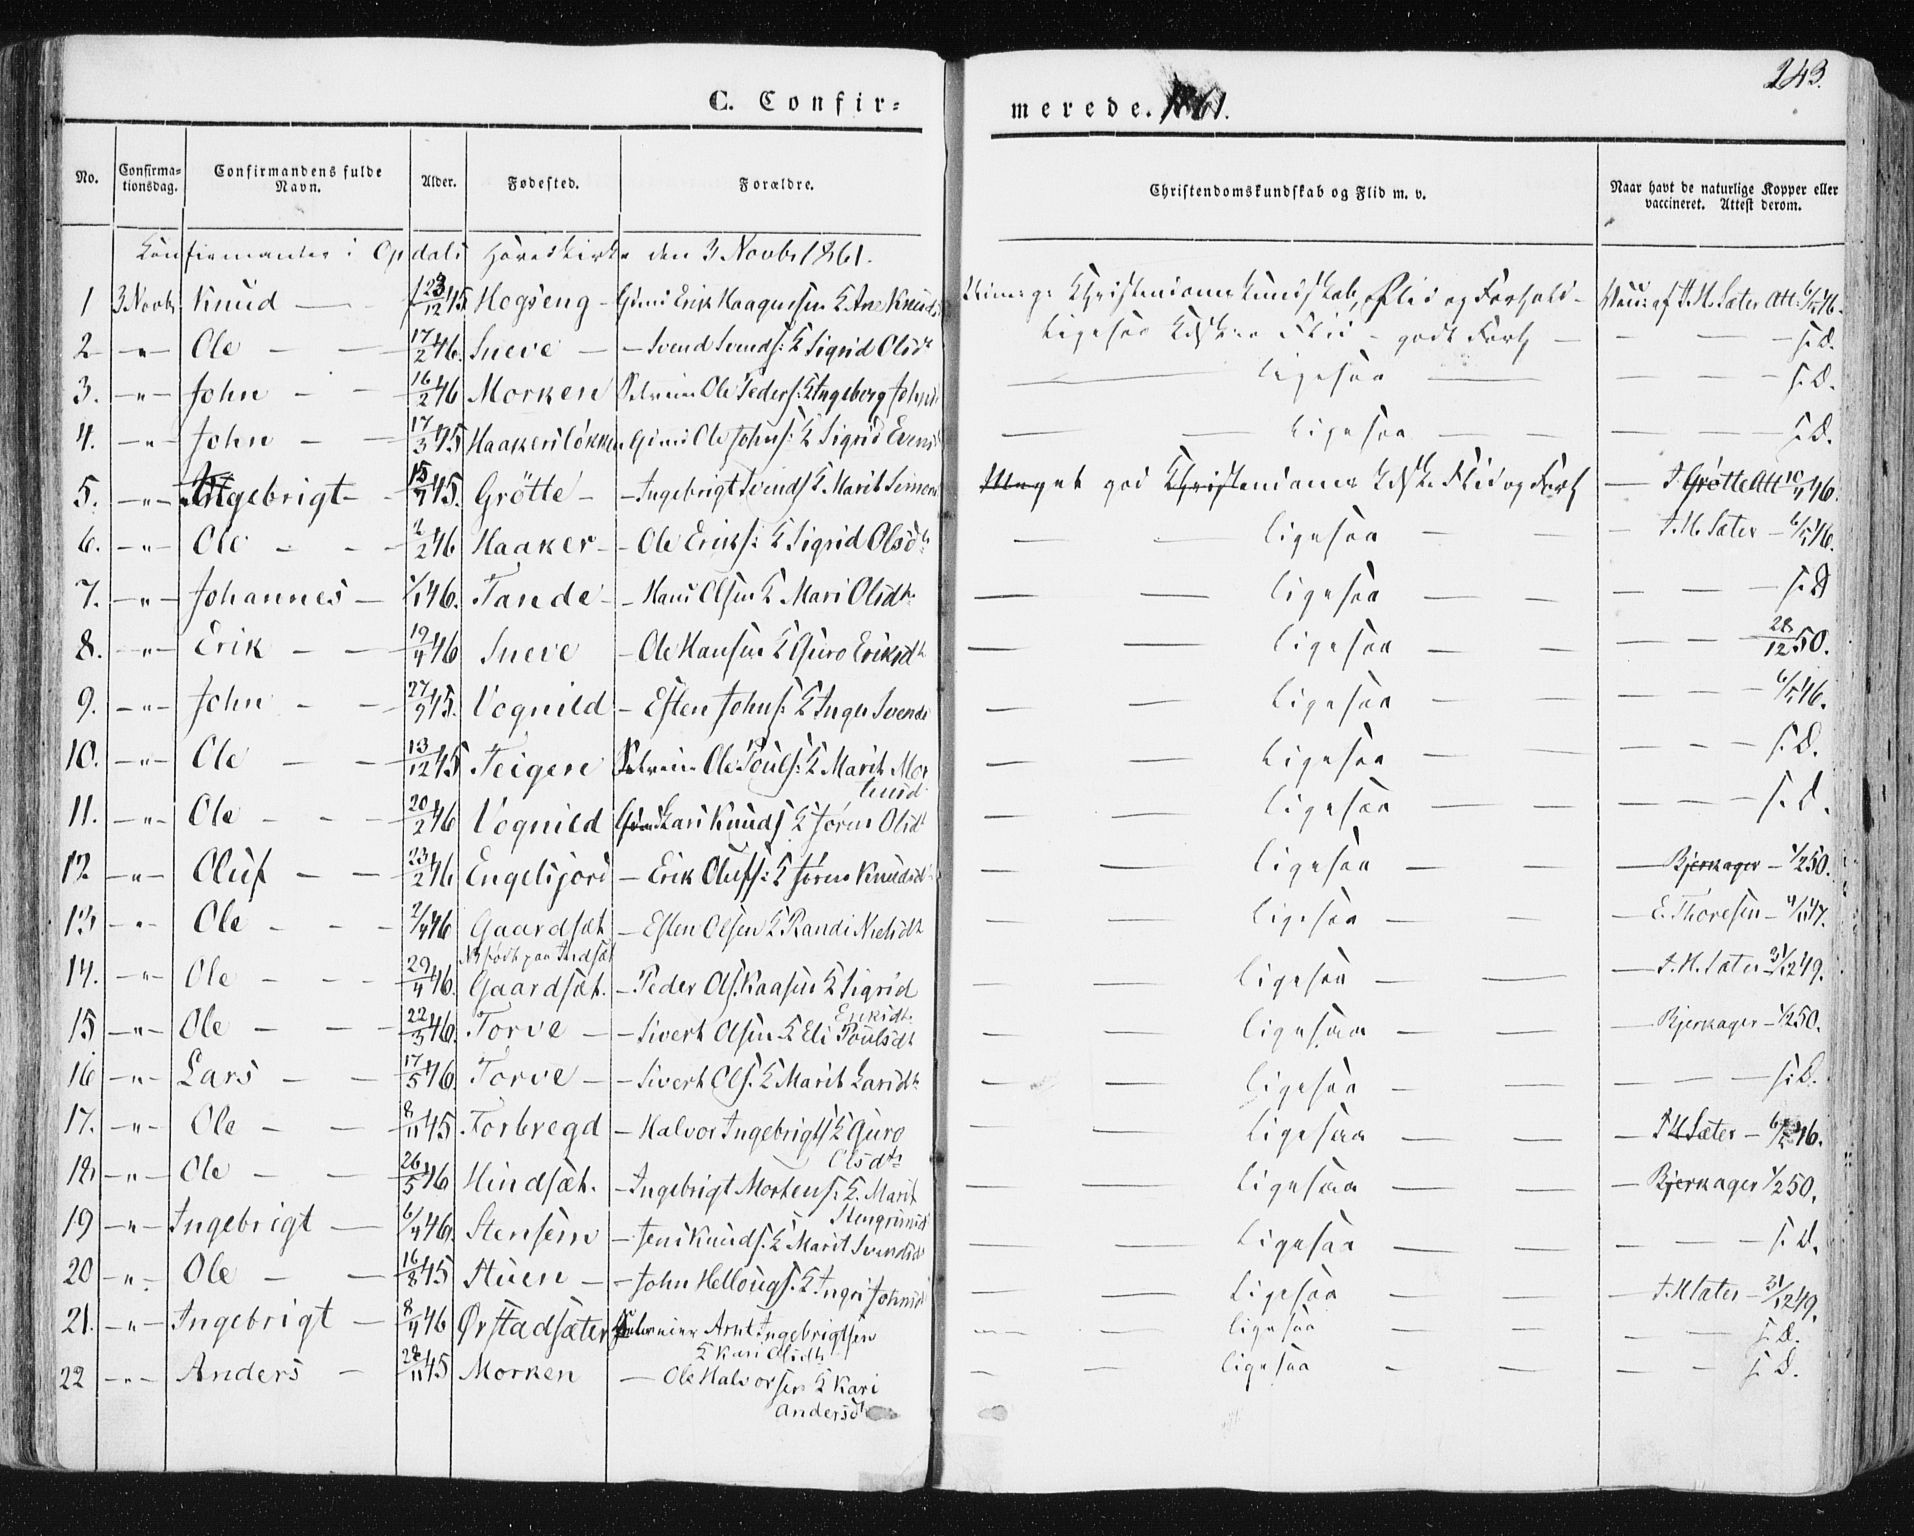 243.
C. Confir=
merede. 1861.
No. Confirmationsdag. Confirmandens fulde Navn. Alder. Fødested. Forældre. Christendomskundskab og Flid m. v. Naar havt de naturlige Kopper eller vaccineret. Attest derom.
Confirmanter i Opdals Hovedkirke den 3 Novbr 1861.
1 3 Novbr Knud — 23/12 45 Hogseng — Erik Haagensen & Ane Knudsd Christendoms Kundskab, Flid og Forhold — af T. H. Sæter Att. 6/7 46.
2 — " — Ole — — 17/2 46. Sneve — — Svend Svends: & Sigrid Olsdt Ligesaa Flid — godt Forh — — — — s. D.
3. — " — John — — 16/2 46 Morken Ole Peders: & Ingeborg Johnsd — ligesaa — — — — s. D.
4. — " — John — — 17/3 45 Haakersløkken Ole Johns: & Sigrid Evensd — ligesaa — — — — — s. D.
5. — " — Ingebrigt — 15/7 45. Grøtte — — Ingebrigt Svends & Marit Simensd Meget god Christendoms Kdsk. Flid og Forh — T. Grøtte Att 10/7 46.
6. — " — Ole — — 2/2 46 Haaker — — Ole Eriks: & Sigrid Olsdt — — ligesaa — — — T. H. Sæter — 6/7 46.
7. — " — Johannes — 1/1 46. Tande — — Hans Olsen & Mari Olsdt — — ligesaa — — — — — s. D
8. — " — Erik — — 19/4 46 Sneve — Ole Hansen & Guro Eriksdt — — ligesaa — — — — 28/12 50.
9. — " — John — — 27/9 45. Vognild — Esten Johns: & Inger Svends — — ligesaa — — — — — — 6/7 46.
10. — " — Ole — — 13/12 45 Teigen Ole Pouls: & Marit Mortensd — — ligesaa — — — — — s. D.
11. — " — Ole — — — 20/2 46 Vognild Lars Knuds & Søren Olsdt — — ligesaa — — — — — — s. D.
12 — " — Oluf — — 23/2 46 Engelsjord — Erik Olufs: & Søren Knudsdt — — ligesaa — — — Bjerkager — 1/2 50.
13 — " — Ole — — — 2/4 46 Gaardsæt — Esten Olsen & Randi Nielsdt — — ligesaa — — — E. Thoresen — 4/11 47.
NB født paa Indsæt
14. — " — Ole — — 29/4 46. Gaardsæt. — Peder Ols. Kaasen & Sigrid Eriksdt. — — ligesaa — — — T. H. Sæter 31/12 49.
15 — " — Ole — — — 22/3 46. Torve — — Sivert Olsen & Eli Poulsdt — — ligesaa — — — Bjerkager — 1/2 50.
16 — " — Lars — — 17/5 46 Torve — — Sivert Ols. & Marit Larsdt — — ligesaa — — — — — s. D.
17. — " — Ole — — 8/11 45 Forbregd — Halvor Ingebrigts & Guro Olsdt — — ligesaa — — — T H Sæter — 6/7 46.
18 — " — Ole — — 26/5 46 Hindsæt. — Ingebrigt Mortens: & Marit Stengrimsd — — ligesaa — — — Bjerkager 1/2 50.
19 — " — Ingebrigt — 6/4 46. Stensem — Jens Knuds. & Marit Svendsd — — ligesaa — — — — — s. D.
20 — " — Ole — — 16/8 45 Stuen — — John Hellougs. & Ingri Johnsd — — ligesaa — — — T. H Sæter — 31/12 49.
21. — " — Ingebrigt — 8/4 46 Ørstadsæter Arnt Ingebrigtsen & Kari Olsdt — — ligesaa — — — — — s. D.
22 — " — Anders — 28/11 45 Morken — Ole Halvorsen & Kari Andersdt — — ligesaa — — — — s. D.